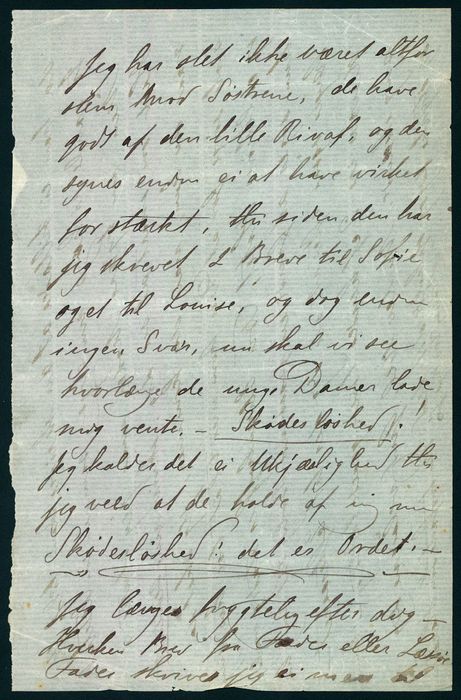 Jeg har slet ikke været altfor
slem mod Søstrene, de have
godt af den lille Rivaf, og den
synes endnu ei at have virket
for stærkt, thi siden den har
jeg skrevet 2 Breve til Sofie
og et til Louise, og dog endnu
ingen Svar, nu skal vi see
hvorlænge de unge Damer lade
mig vente. – Skødesløshed!
Jeg kalder det ei Ukjærlighed thi
jeg veed at de holde af mig
Skødesløshed! det er Ordet. –
Jeg længes frygtelig efter dig –
Hverken Brev fra Fader eller
Fader skriver jeg ei